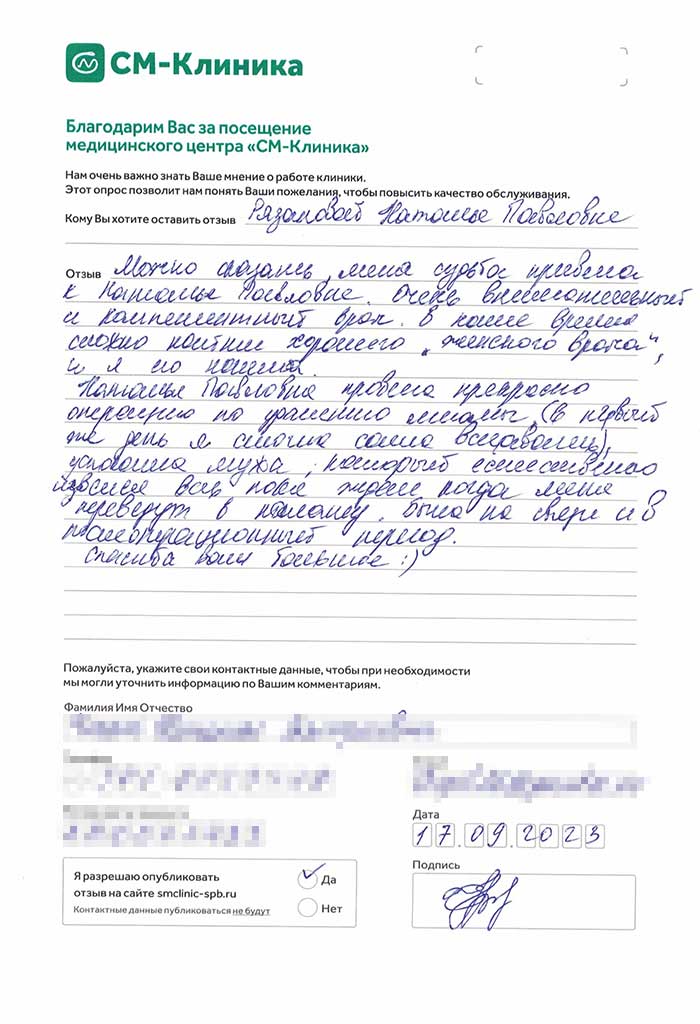 СМ-Клиника
Благодарим Вас за посещение
медицинского центра «СМ-Клиника»
Нам очень важно знать Ваше мнение о работе клиники.
Этот опрос позволит нам понять Ваши пожелания, чтобы повысить качество обслуживания.
Кому Вы хотите оставить отзыв Рязановой Наталье Павловне
Отзыв Можно сказать, меня судьба привела
к Наталье Павловне. Очень внимательный
и компетентный врач. В наше время
сложно найти хорошего „женского врача“,
и я его нашла.
Наталья Павловна провела прекрасно
операцию по удалению миомы (в первый
же день я смогла сама вставать),
успокоила мужа, который естественно
извёлся весь пока ждал когда меня
переведут в палату. Была на связи и в
послеоперационный период.
Спасибо Вам большое :)
Пожалуйста, укажите свои контактные данные, чтобы при необходимости
мы могли уточнить информацию по Вашим комментариям.
Фамилия Имя Отчество
Дата
17.09.2023
Подпись
Я разрешаю опубликовать
отзыв на сайте smclinic-spb.ru
Контактные данные публиковаться не будут
Да
Нет